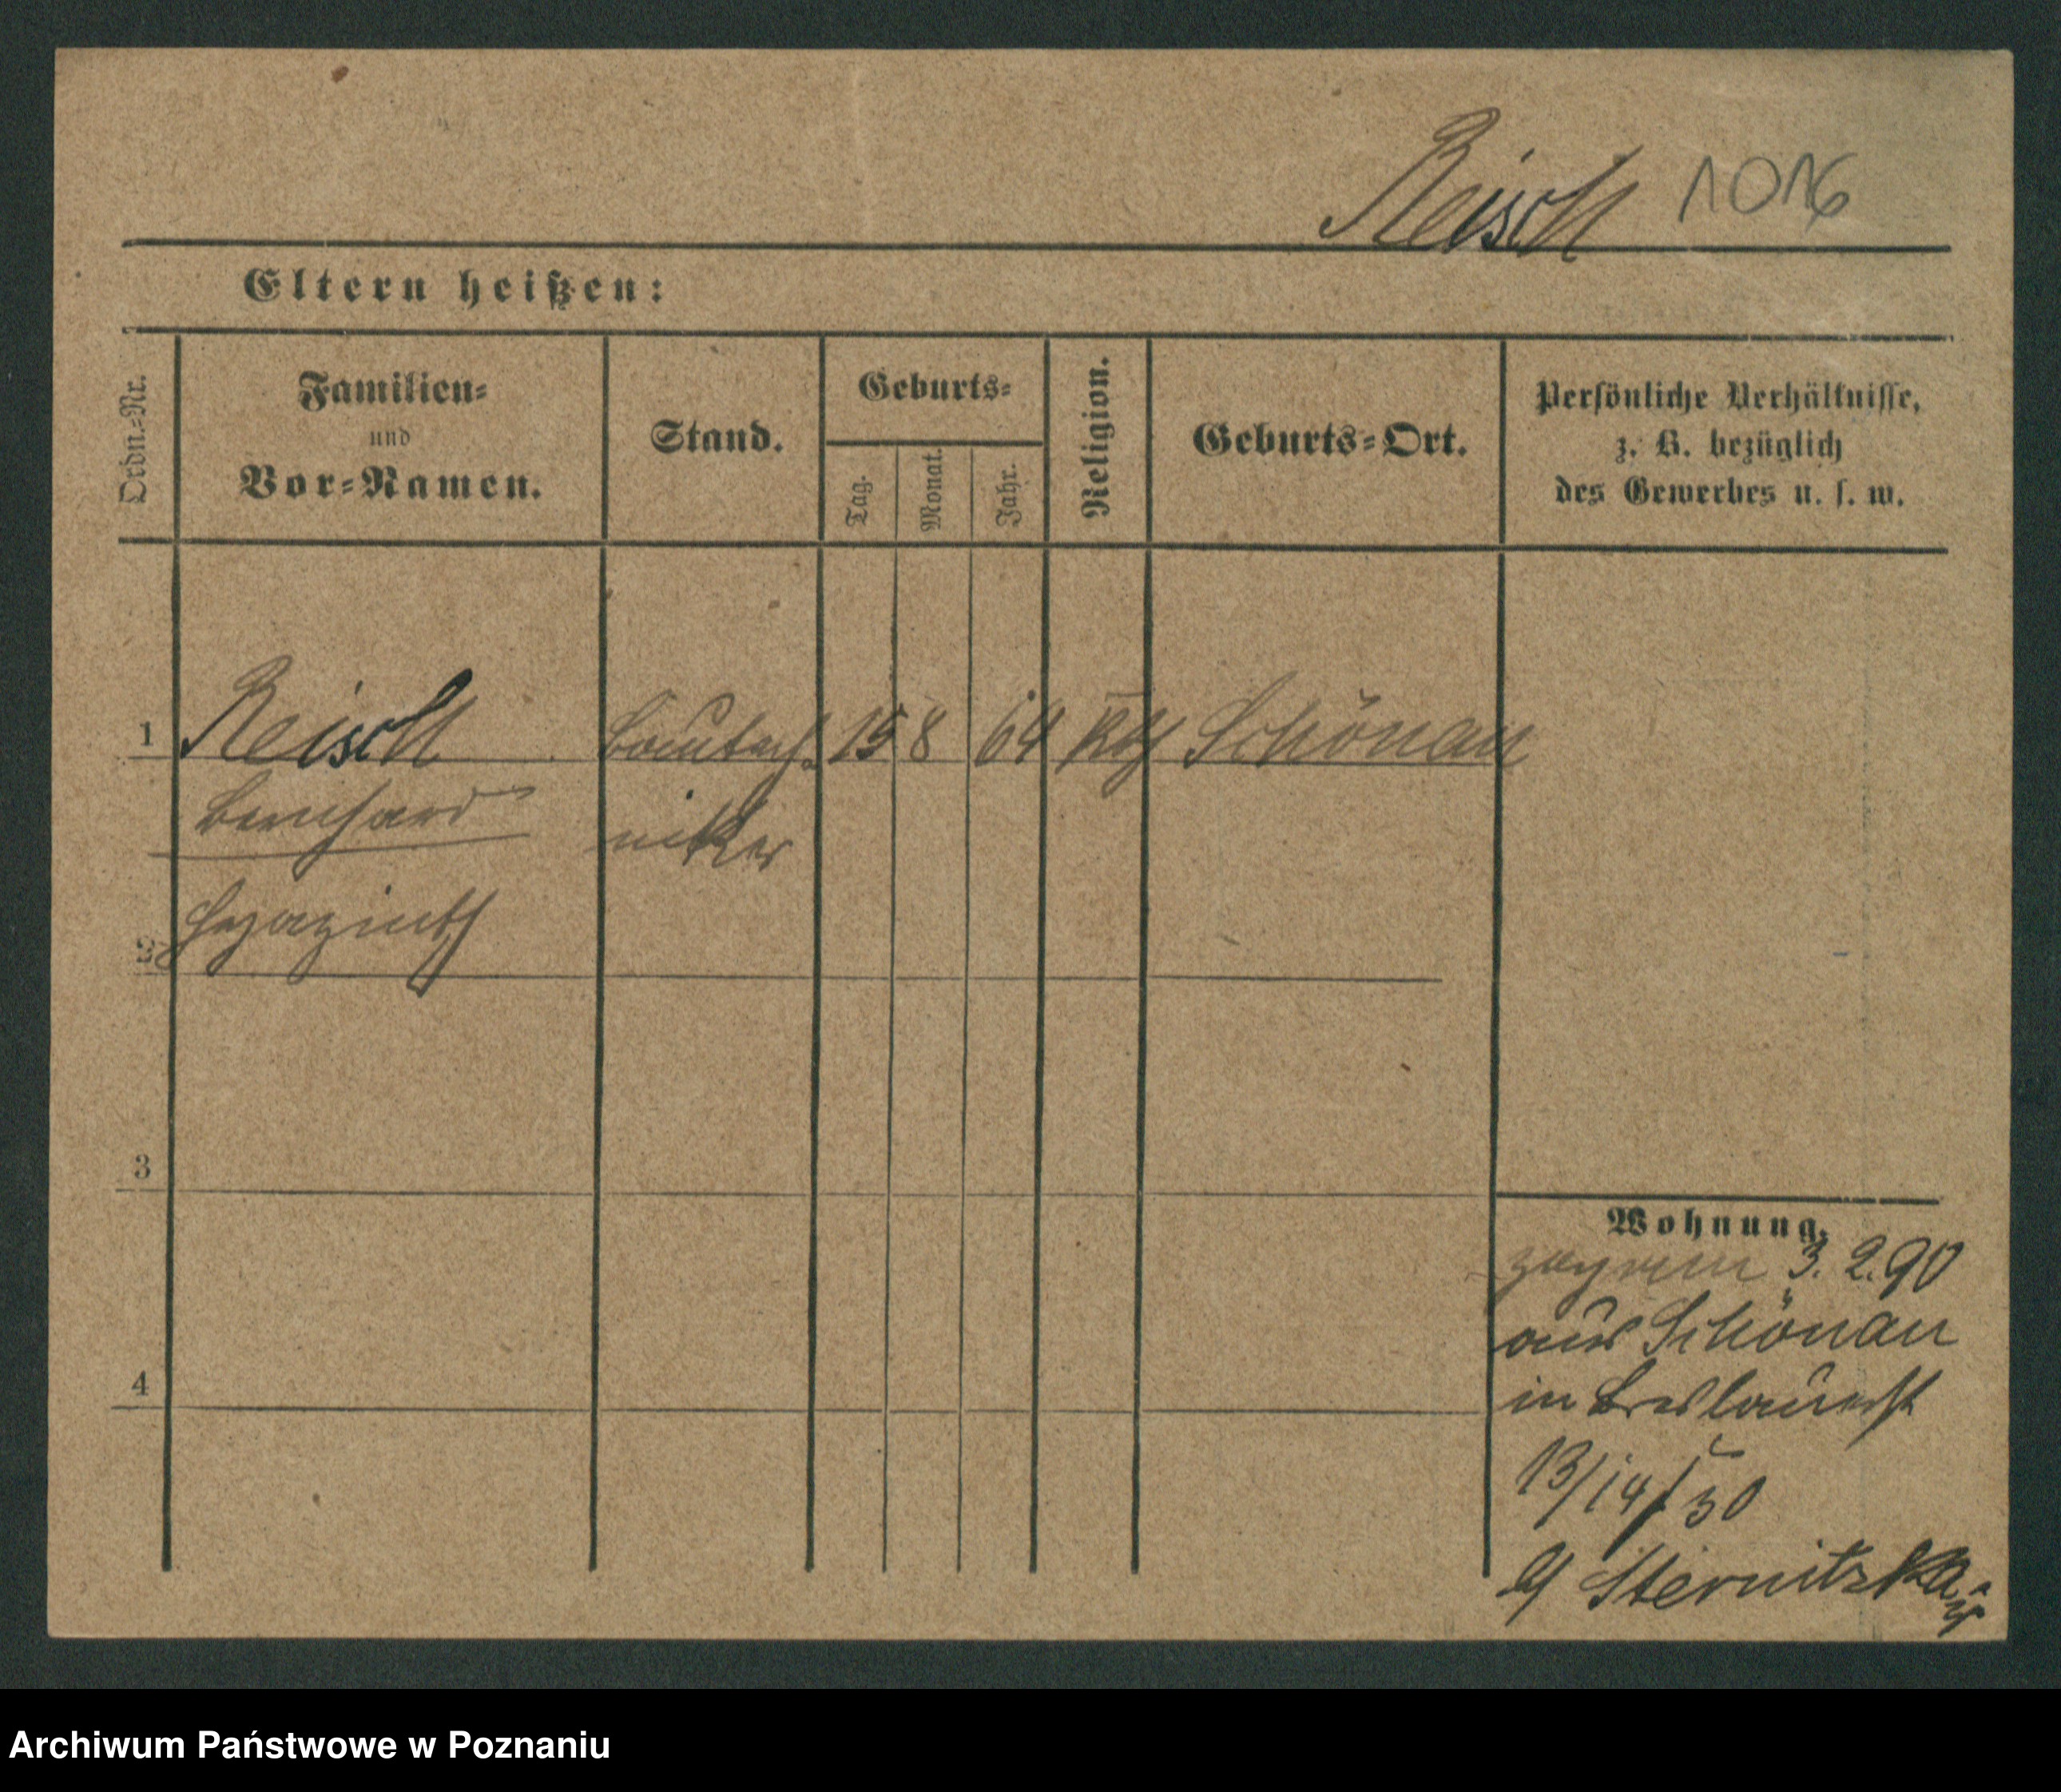 Reisch 1016
Eltern heißen:
Ordn.-Nr.
Familien-
und
Vor-Namen.
Stand.
Geburts-
Tag.
Monat.
Jahr.
Religion.
Geburts-Ort.
Persönliche Verhältnisse,
z. B. bezüglich
des Gewerbes u. s. w.
1 Reisch Bautech 15 8 64 kth Schönau
Bernhard niker
2 Hyazinth
3
4
Wohnung.
zugezogen 3. 2. 90
aus Schönau
in Breslauerst
13/14
b/ Sternitzka
Archiwum Państwowe w Poznaniu